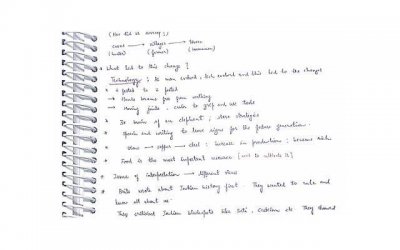 (How did it happen?)
caves → villages → towns
(hunter) (farmer) (businessman)
* What led to this change?
Technology: As man evolved, tech evolved and this led to the changes
* 4 footed to 2 footed
→ Hands became free from walking
→ Moving joints, easier to grip and use tools
* Bigger brains of an elephant; uses strategies
* Speech and writing to leave signs for the future generation.
* stone → copper → steel : increase in production : became rich
* Food is the most important resource
* Issues of interpretation → different views
* Brits wrote about Indian history first. They wanted to rule and
know all about us.
They criticised Indian like Sati, Casteism etc. They showed